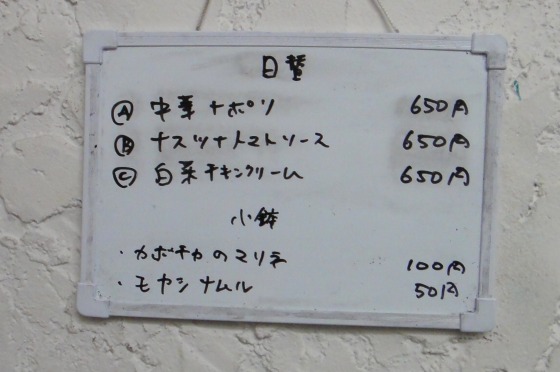 日替
Ⓐ 中華ナポリ 650円
Ⓑ ナスツナトマトソース 650円
Ⓒ 白菜チキンクリーム 650円
小鉢
・カボチャのマリネ 100円
・モヤシナムル 50円